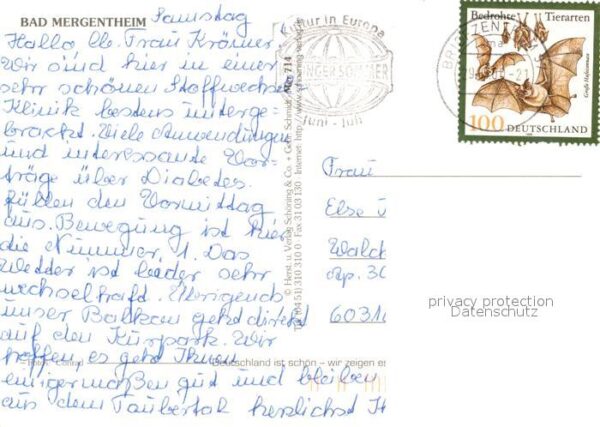 BAD MERGENTHEIM Samstag
Hallo, lb. Frau Krämer.
Wir sind hier in einer
sehr schönen Stoffwechsel
Klinik bestens unterge-
bracht. Viele Anwendungen
und interessante Vor-
träge über Diabetes
füllen den Vormittag
aus. Bewegung ist hier
die Nummer 1. Das
Wetter ist leider sehr
wechselhaft. Übrigends
unser Balkon geht direkt
auf den Kurpark. Wir
hoffen, es geht Ihnen
einigermaßen gut und bleiben
aus dem Taubertal herzlichst
© Herst. u. Verlag Schöning & Co. + Gebr. Schmidt
Tel. (04 51) 310 310 0 · Fax 31 03 130 · Internet: http://www.schoening-verlag
714
Deutschland ist schön – wir zeigen es
Kultur in Europa
SOMMER
Juni - Juli
Bedrohte Tierarten
Große Hufeisennase
100 DEUTSCHLAND
Frau
Else
60316
privacy protection
Datenschutz